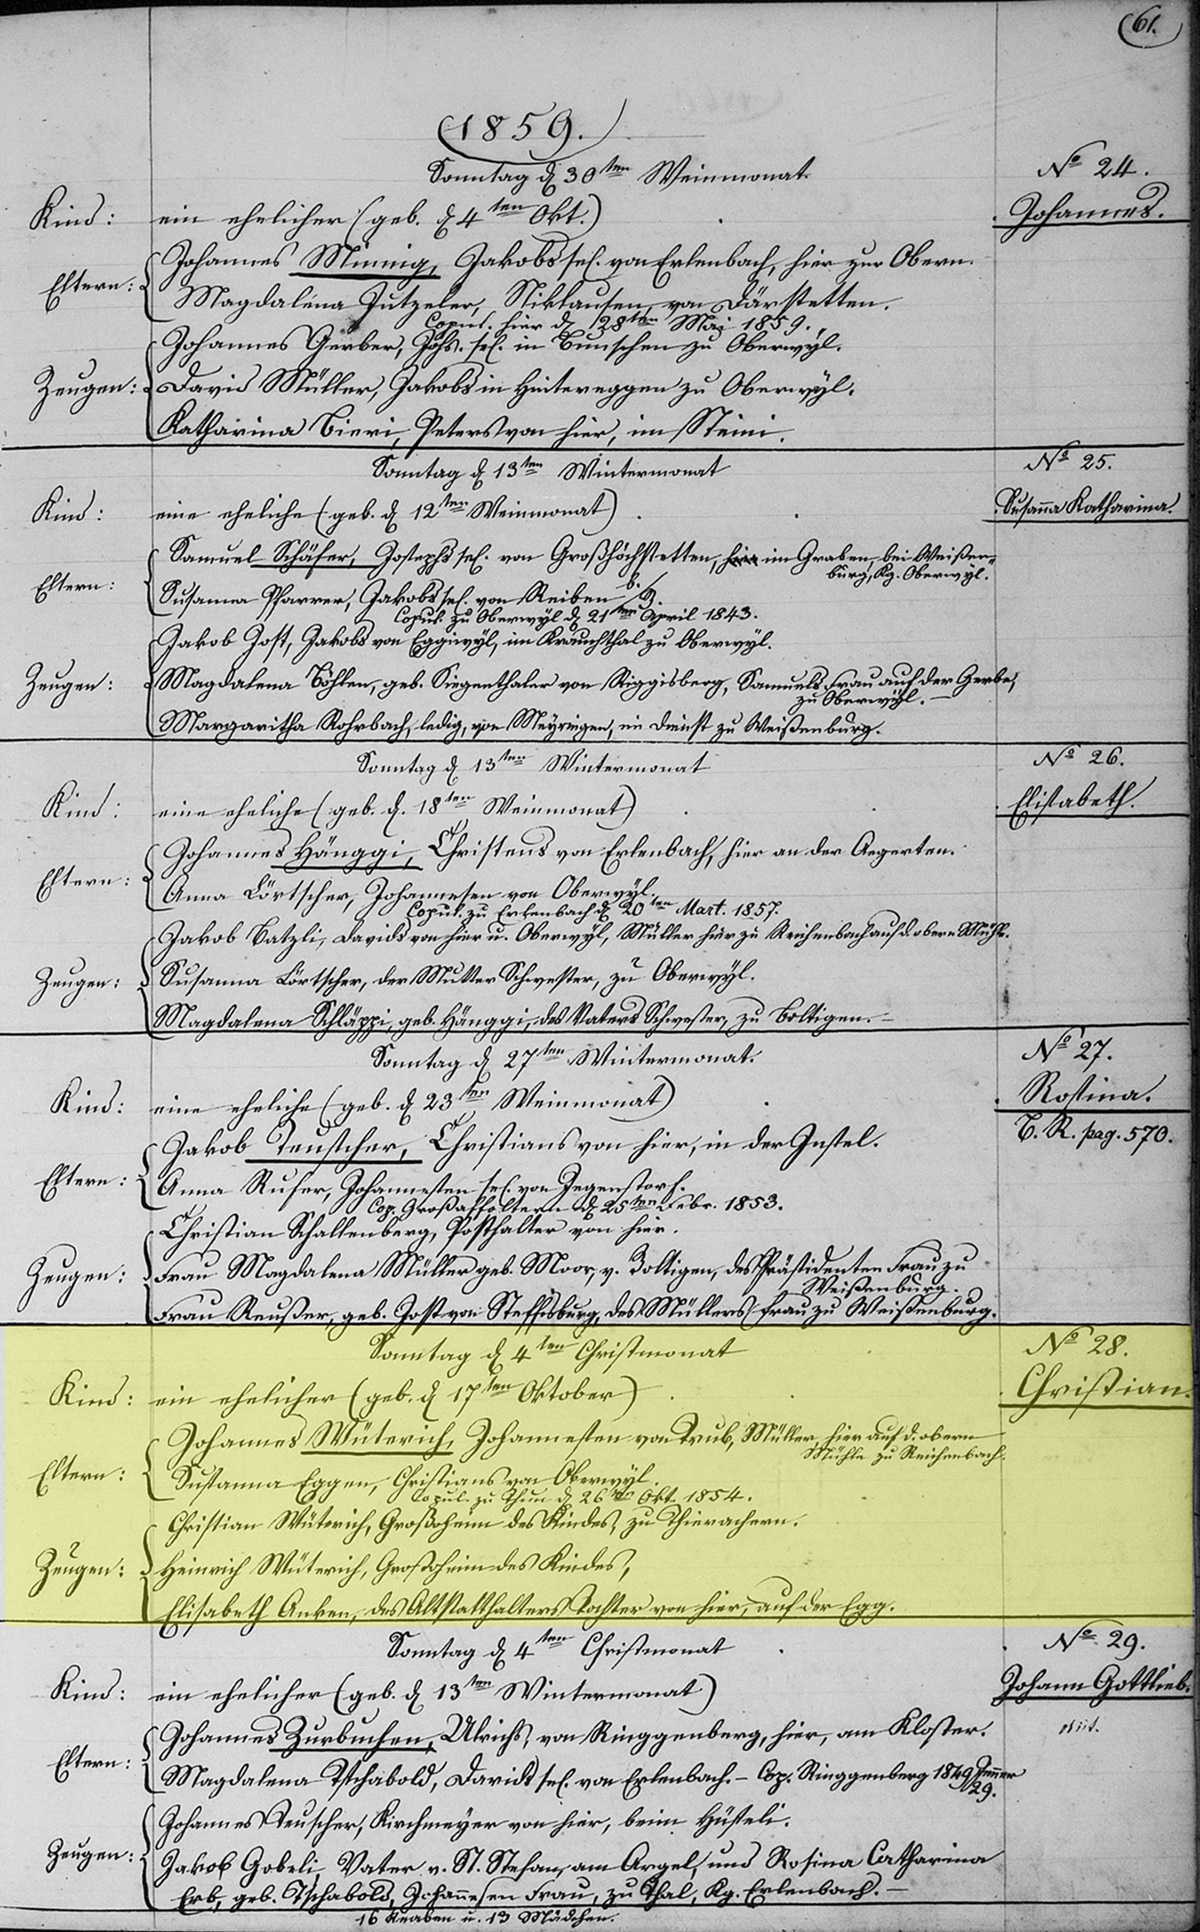 61.
1859.
Sonntag d 30ten Weinmonat.
No 24.
Kind: ein ehelicher (geb. d 4ten Okt.)
Johannes.
Eltern: Johannes Minnig, Jakobs sel. von Erlenbach, hier zur Obern.
Magdalena Jutzeler, Niklausen, von Därstetten.
Copul. hier d 28ten Mai 1859.
Zeugen: Johannes Gerber, Johs. sel. in Bunschen zu Oberwyl.
David Müller, Jakobs in Hintereggen zu Oberwyl.
Katharina Bieri, Peters von hier, im Steini.
Sonntag d 13ten Wintermonat
No 25.
Kind: eine eheliche (geb. d 12ten Weinmonat)
Susanna Katharina.
Eltern: Samuel Schäfer, Josephs sel. von Großhöchstetten, hier im Graben, bei Weißen-
burg, Kg. Oberwyl.
Susanna Pfarrer, Jakobs sel. von Reiben b. B.
Copul. zu Oberwyl d 21ten April 1843.
Zeugen: Jakob Jost, Jakobs von Eggiwyl, im Krauchthal zu Oberwyl.
Magdalena Böhlen, geb. Siegenthaler von Riggisberg, Samuels Frau auf der Gerbe,
zu Oberwyl.
Margaritha Rohrbach, ledig, von Meyringen, im Dienst zu Weißenburg.
Sonntag d 13ten Wintermonat
No 26.
Kind: eine eheliche (geb. d. 18ten Weinmonat)
Elisabeth.
Eltern: Johannes Hänggi, Christens von Erlenbach, hier an der Aegerten.
Anna Lörtscher, Johannesen von Oberwyl.
Copul. zu Erlenbach d 20ten Mart. 1857.
Zeugen: Jakob Batzli, Davids von hier u. Oberwyl, Müller hier zu Reichenbach auf d. obern Mühle.
Susanna Lörtscher, der Mutter Schwester, zu Oberwyl.
Magdalena Schläppi, geb. Hänggi, des Vaters Schwester, zu Boltigen.
Sonntag d 27ten Wintermonat.
No 27.
Kind: eine eheliche (geb. d 23ten Weinmonat)
Rosina.
B. R. pag. 570.
Eltern: Jakob Teuscher, Christians von hier, in der Insel.
Anna Rufer, Johannesen sel. von Jegenstorf.
Cop. Großaffoltern d 25ten Febr. 1853.
Zeugen: Christian Schallenberg, Posthalter von hier.
Frau Magdalena Müller geb. Moor, v. Boltigen, des Präsidenten Frau zu
Weißenburg.
Frau Reußer, geb. Jost von Steffisburg, des Müllers Frau zu Weissenburg.
Sonntag d 4ten Christmonat
No 28.
Kind: ein ehelicher (geb. d 17ten Oktober)
Christian.
Eltern: Johannes Wüterich, Johannesen von Trub, Müller hier auf d. obern
Mühle zu Reichenbach.
Susanna Eggen, Christians von Oberwyl.
Copul. zu Thun d 26ten Okt. 1854.
Zeugen: Christian Wüterich, Großoheim des Kindes, zu Thierachern.
Heinrich Wüterich, Großoheim des Kindes,
Elisabeth Anken, des Altstatthalters Tochter von hier, auf der Egg.
Sonntag d 4ten Christmonat
No 29.
Kind: ein ehelicher (geb. d 13ten Wintermonat)
Johann Gottlieb.
Eltern: Johannes Zurbuchen, Ulrichs, von Ringgenberg, hier, am Kloster.
Magdalena Tschabold, Davids sel. von Erlenbach. – Cop. Ringgenberg 1849 Jenner
29.
Zeugen: Johannes Teuscher, Kirchmeyer von hier, beim Hüsteli.
Jakob Gobeli Vater v. St. Stefan, am Argel, und Rosina Catharina
Erb, geb. Tschabold, Johannesen Frau, zu Thal, Kg. Erlenbach. –
16 Knaben u. 13 Mädchen.